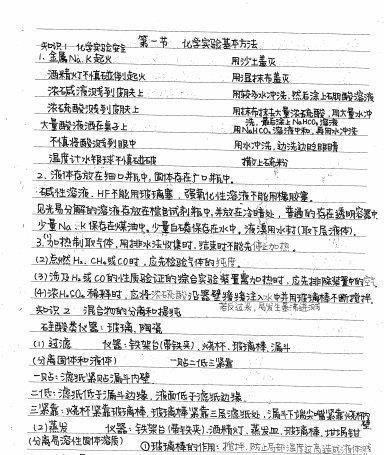 第一节 化学实验基本方法
知识1 化学实验安全
1. 金属Na、K起火 用沙土盖灭
酒精灯不慎碰倒起火 用湿抹布盖灭
浓碱液溅到皮肤上 用较多水冲洗,然后涂上硼酸溶液
浓硫酸溅到皮肤上 用抹布抹去大量浓硫酸,用大量水冲洗,最后涂上NaHCO₃溶液
大量酸液洒在桌子上 用NaHCO₃溶液中和,再用水冲洗
不慎将酸溅到眼中 用水冲洗,边洗边眨眼睛
温度计水银球不慎碰破 撒上硫粉
2. 液体存放在细口瓶中,固体存在广口瓶中。
碱性溶液、HF不能用玻璃塞,强氧化性溶液不能用橡胶塞。
见光易分解的溶液存放在棕色试剂瓶中,并放在冷暗处,普通的存在透明容器中
少量Na、K保存在煤油中。少量白磷保存在水中。液溴用水封(取下层液体)。
3.(1)加热制取气体,用排水法收集时,结束时不能先停止加热。
(2)点燃H₂、CH₄或CO时,应先检验气体的纯度。
(3)涉及H₂或CO的性质验证的综合实验装置需加热时,应先排除装置中的空气
(4)浓H₂SO₄稀释时,应将浓硫酸沿器壁慢慢注入水中并用玻璃棒不断搅拌.
若反过来,易发生暴沸迸溅
知识2 混合物的分离和提纯
硅酸类仪器:玻璃、陶瓷
(1)过滤 仪器:铁架台(带铁夹)、烧杯、玻璃棒、漏斗
(分离固体和液体) 一贴二低三紧靠
一贴:滤纸紧贴漏斗内壁
二低:滤纸低于漏斗边缘、液面低于滤纸边缘.
三紧靠:烧杯紧靠玻璃棒、玻璃棒紧靠三层滤纸处、漏斗下端尖嘴紧靠烧杯内壁
(2)蒸发 仪器:铁架台(带铁夹)、酒精灯、蒸发皿、玻璃棒、坩埚钳
(分离易溶性固体溶质) ①玻璃棒的作用:搅拌,防止局部温度过高造成液体溅